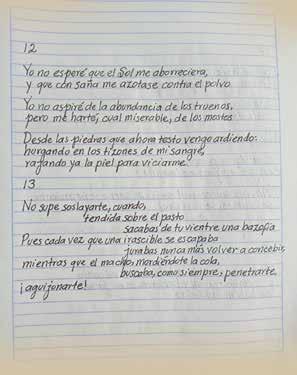 12
Yo no esperé que el Sol me aborreciera,
y que con saña me azotase contra el polvo
Yo no aspiré de la abundancia de los truenos,
pero me harté, cual miserable, de los mostos
Desde las piedras que ahora testo vengo ardiendo:
hurgando en los tizones de mi sangre,
rajando ya la piel para viciarme.
13
No supe soslayarte, cuando,
tendida sobre el pasto
sacabas de tu vientre una bazofia
Pues cada vez que una irascible se escapaba
jurabas nunca más volver a concebir,
mientras que el macho, mordiéndote la cola,
buscaba, como siempre, penetrarte.
¡aguijonarte!